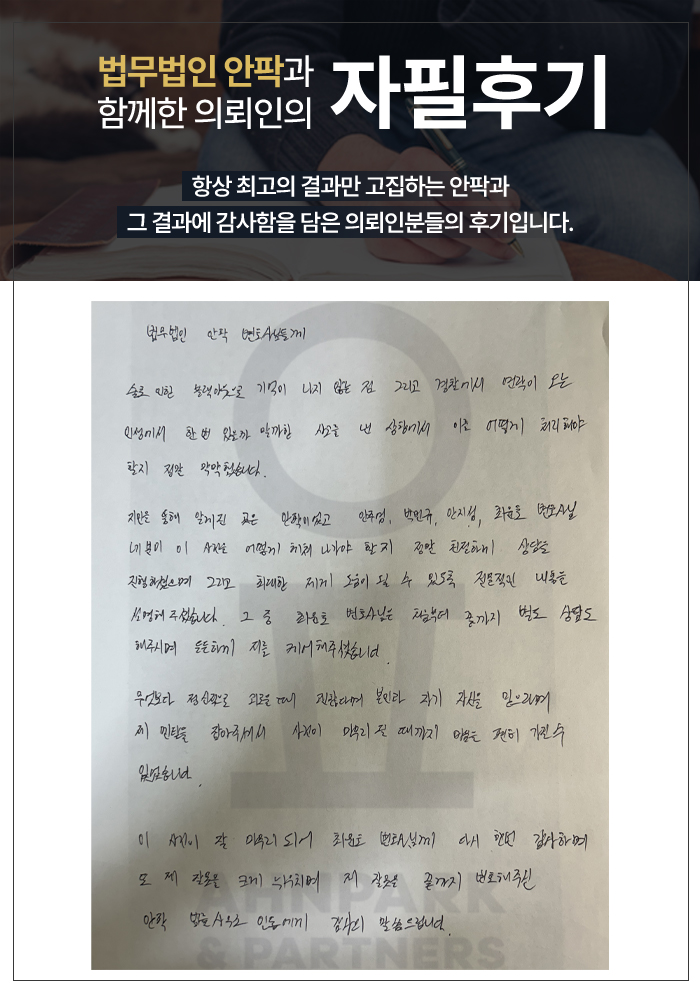 법무법인 안팍과
함께한 의뢰인의
자필후기
항상 최고의 결과만 고집하는 안팍과
그 결과에 감사함을 담은 의뢰인분들의 후기입니다.
법무법인 안팍 변호사님들께
술로 인한 블랙아웃으로 기억이 나지 않는 점 그리고 경찰에서 연락이 오는
인생에서 한 번 있을까 말까한 사고를 낸 상황에서 이를 어떻게 처리해야
할지 정말 막막했습니다.
지인을 통해 알게 된 곳은 안팍이었고 안주영, 박민규, 안지성, 최유호 변호사님
네 분이 이 사건을 어떻게 헤쳐 나가야 할지 정말 친절하게 상담을
진행하셨으며 그리고 최대한 제게 도움이 될 수 있도록 전문적인 내용을
설명해 주셨습니다. 그 중 최유호 변호사님은 처음부터 끝까지 별도 상담도
해주시며 든든하게 저를 케어해주셨습니다.
무엇보다 정신적으로 괴로울 때 진람다며 본인과 자기 자신을 믿으라며
제 멘탈을 잡아주셔서 사건이 마무리 될 때까지 마음을 편히 가질 수
있었습니다.
이 사건이 잘 마무리되어 최유호 변호사님께 다시 한번 감사하며
또 제 잘못을 크게 뉘우치며 제 잘못을 끝까지 변호해주신
안팍 법률사무소 인원에게 감사의 말씀드립니다.
AHNPARK
& PARTNERS